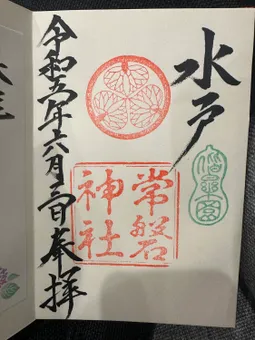 水戸
偕樂園
常磐
神社
令和五年六月 日奉拝